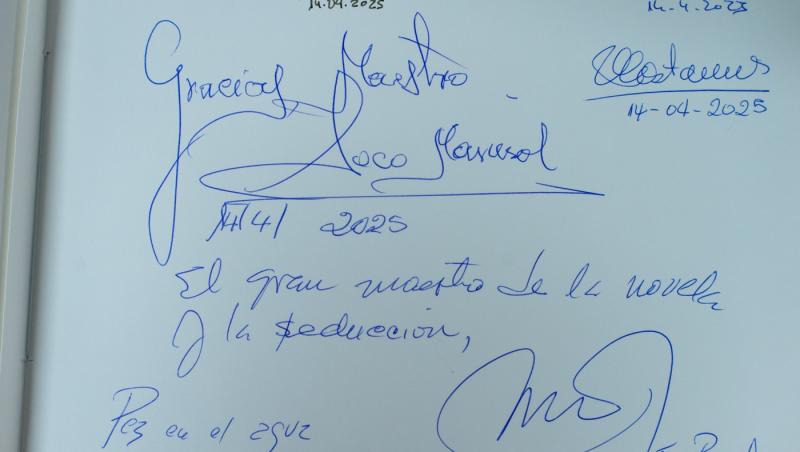 14.04.2025
14-4-2025
Gracias Maestro
14-04-2025
Marisol
14/4/ 2025
El gran maestro de la novela
y la seducción,
Pez en el agua